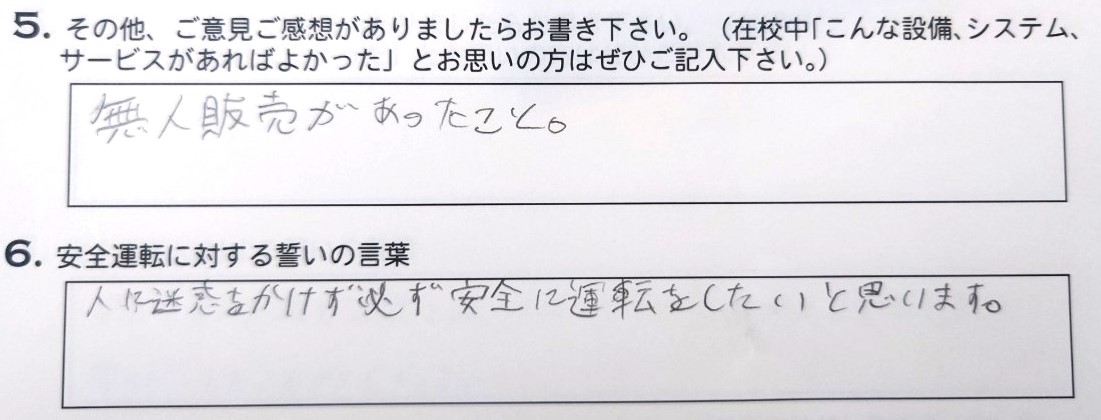 5. その他、ご意見ご感想がありましたらお書き下さい。（在校中「こんな設備、システム、
サービスがあればよかった」とお思いの方はぜひご記入下さい。）
無人販売があったこと。
6. 安全運転に対する誓いの言葉
人に迷惑をかけず必ず安全に運転をしたいと思います。